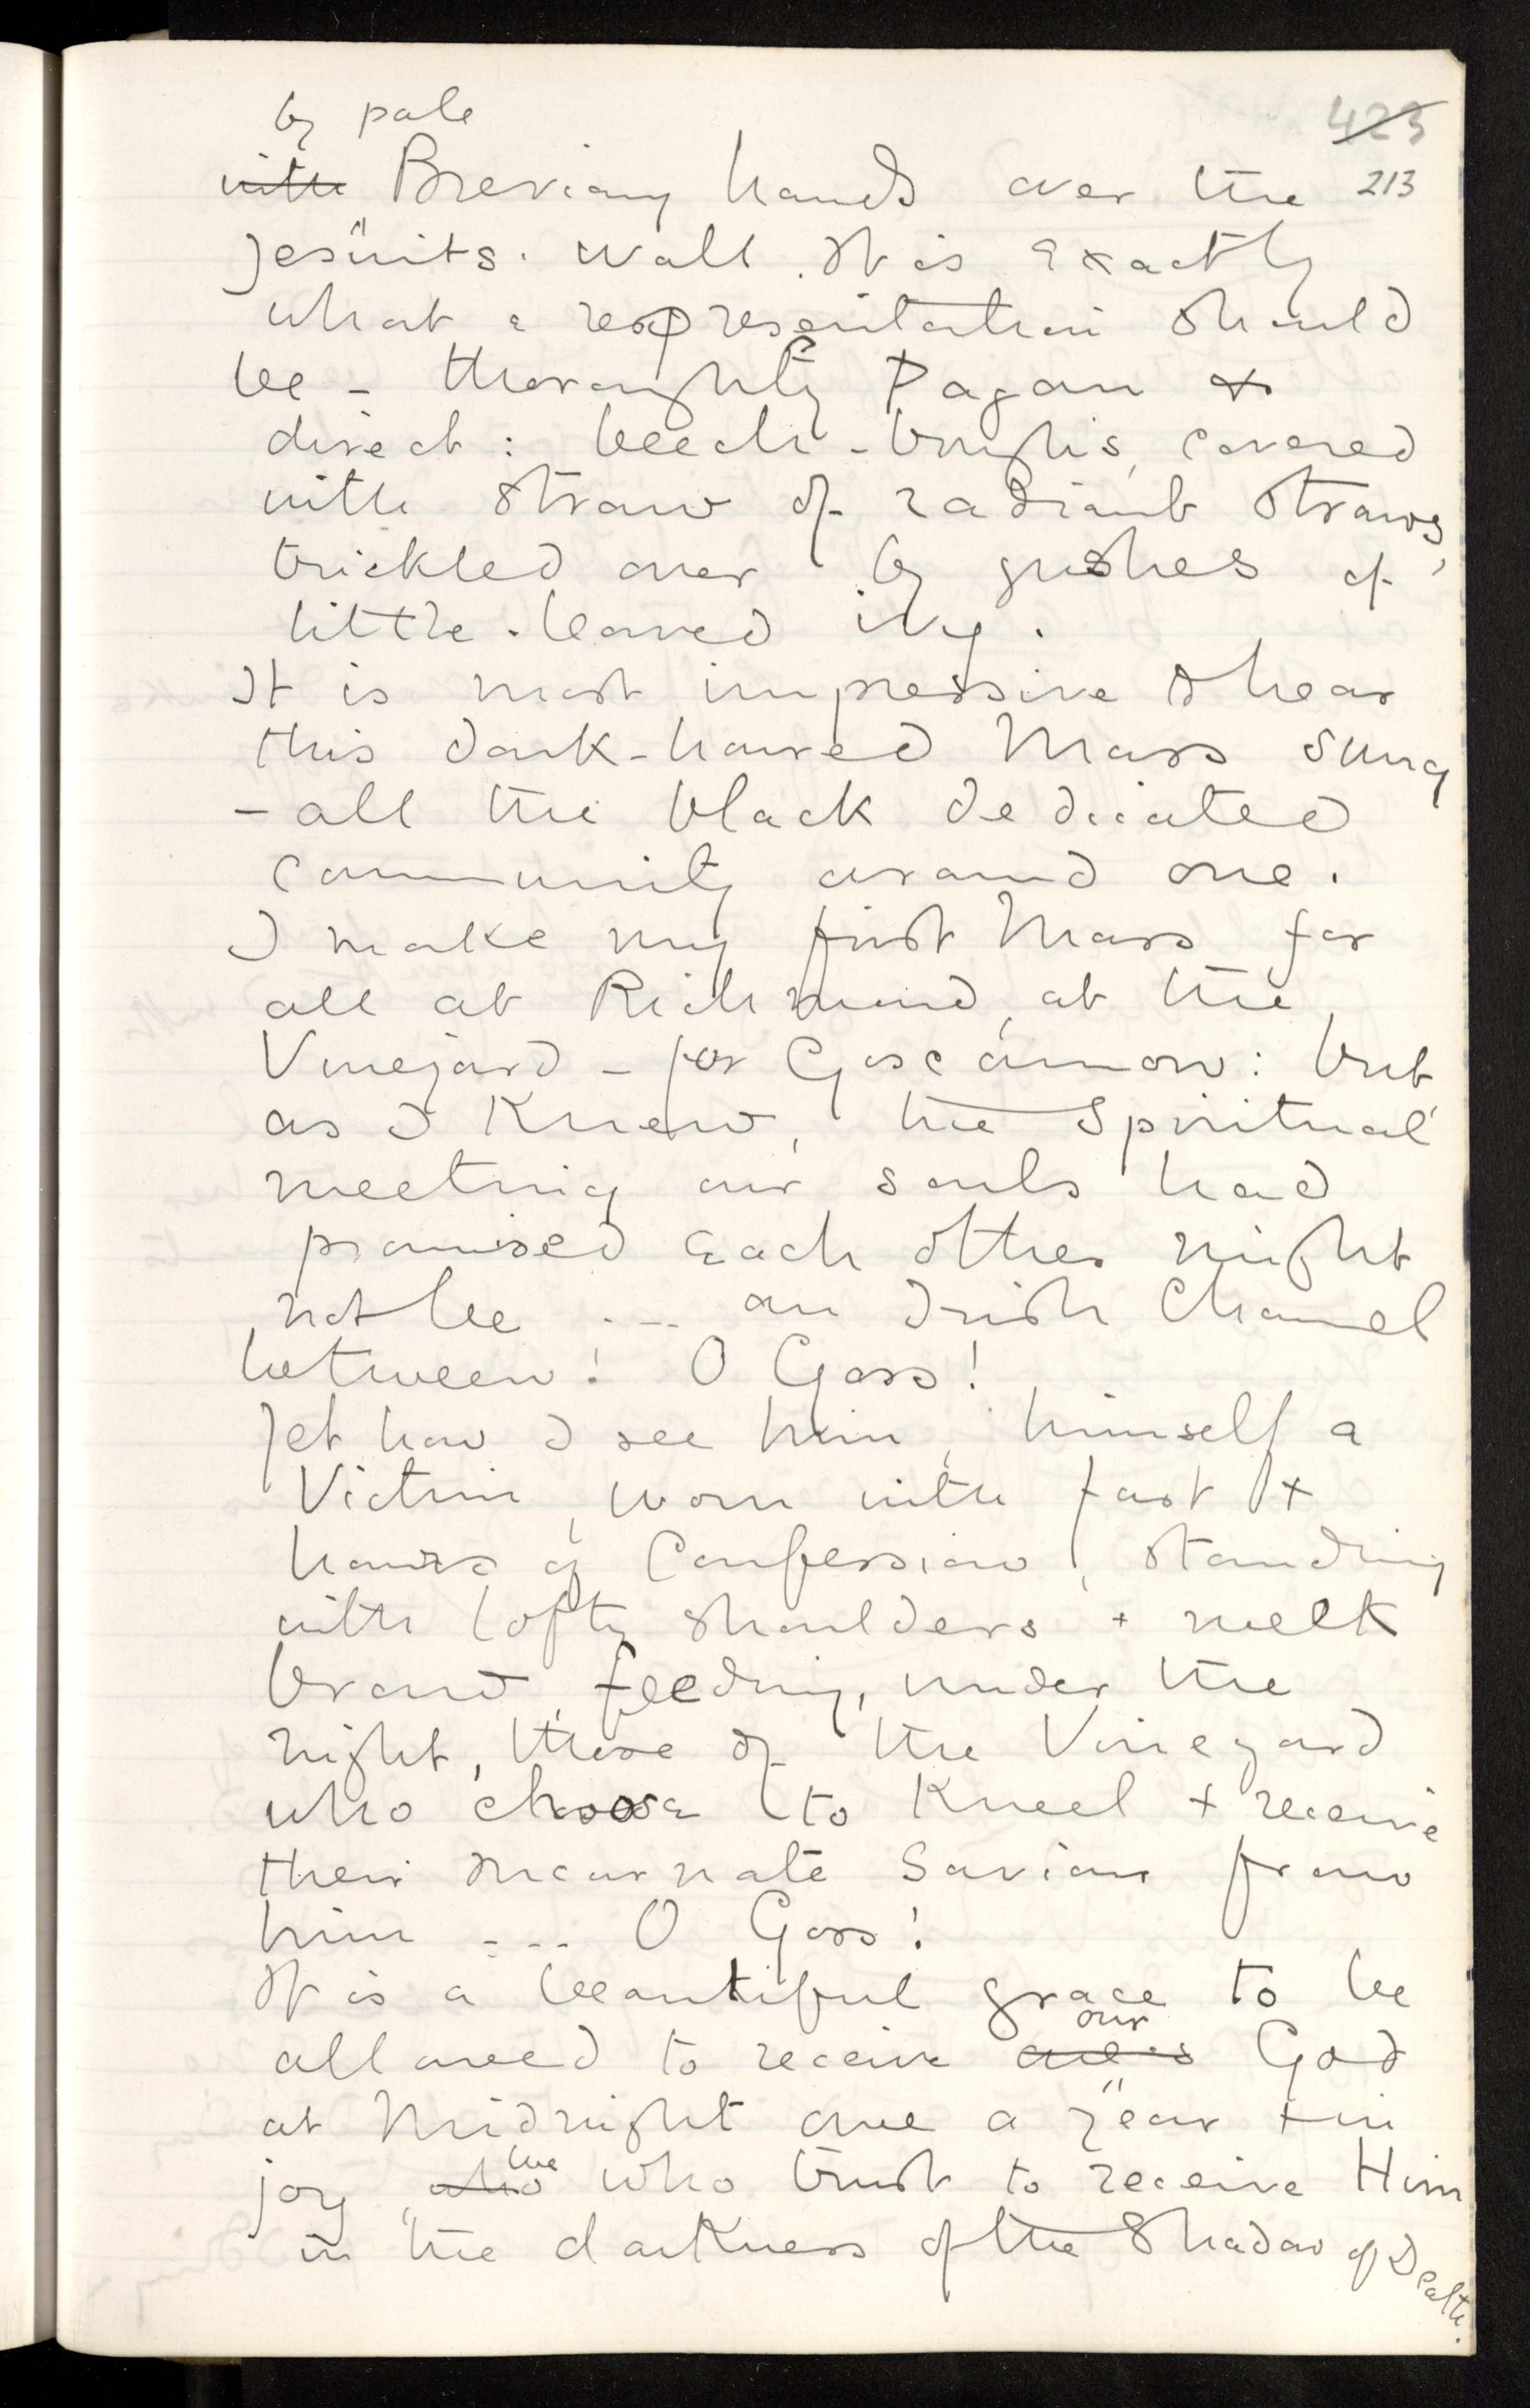 423
213
by pale
with Breviary hands over the
Jesuits' wall. It is exactly
what a representation should
be - thoroughly Pagan &
direct: beech-boughs, covered
with straw of radiant straws,
trickled over by gushes of
little-leaved ivy.
It is most impressive to hear
this dark-haired Mass sung
- all the black dedicated
community around one.
I make my first Mass for
all at Richmond, at the
Vineyard - for Goscannon: but
as I knew, the Spiritual
meeting our souls had
promised each other might
not be ... an Irish Channel
between! O Goss!
Yet how I see him, himself a
Victim, worn with fast &
hours of Confession, standing
with lofty shoulders + meek
brow, feeding, under the
night, those of the Vineyard
who choose to kneel + receive
their Incarnate Saviour from
him ... O Goss!
It is a beautiful grace to be
our
allowed to receive one's God
at Midnight once a year + in
we
joy, who who trust to receive Him
in the darkness of the Shadow of Death.